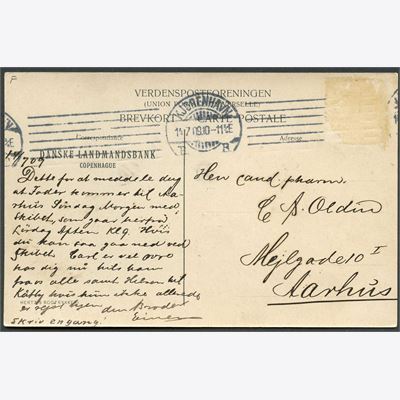 P
VERDENSPOSTFORENINGEN
(UNION POSTALE UNIVERSELLE)
BREVKORT — CARTE POSTALE
KJØBENHAVN
14.7.09.10-11½E
B.
Correspondance
Adresse
DANSKE LANDMANDSBANK
COPENHAGUE
14/7 09
Dette for at meddele dig
at Fader kommer til Aar
huus Søndag Morgen med
Skibet, som gaar herfra
Lørdag Aften Kl 9. Hvis
du kan saa gaa ned ved
Skibet. Carl er vel ovre
hos dig nu hils ham
fra os alle samt Hilsen til
Käthy hvis hun ikke allerede
er rejst hjem. din Broder
Einer
Skriv engang!
Herr cand pharm.
C A. Oldin
Mejlgade 10 I
Aarhus